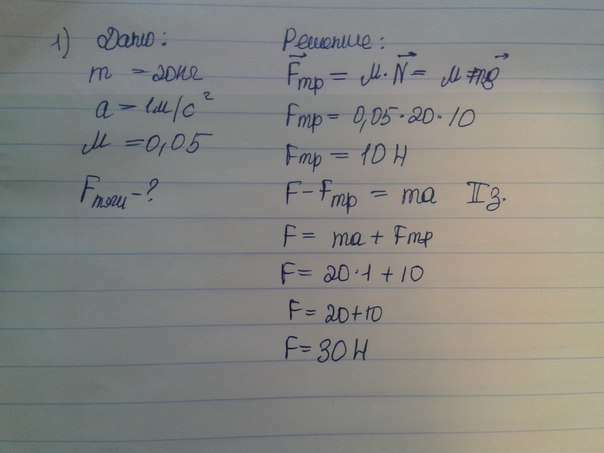 1) Дано:
m = 20 кг
a = 1 м/с²
M = 0,05
Fтяги - ?
Решение:
F⃗тр = M · N⃗ = M mg⃗
Fтр = 0,05 · 20 · 10
Fтр = 10 Н
F - Fтр = ma II з.
F = ma + Fтр
F = 20 · 1 + 10
F = 20 + 10
F = 30 Н